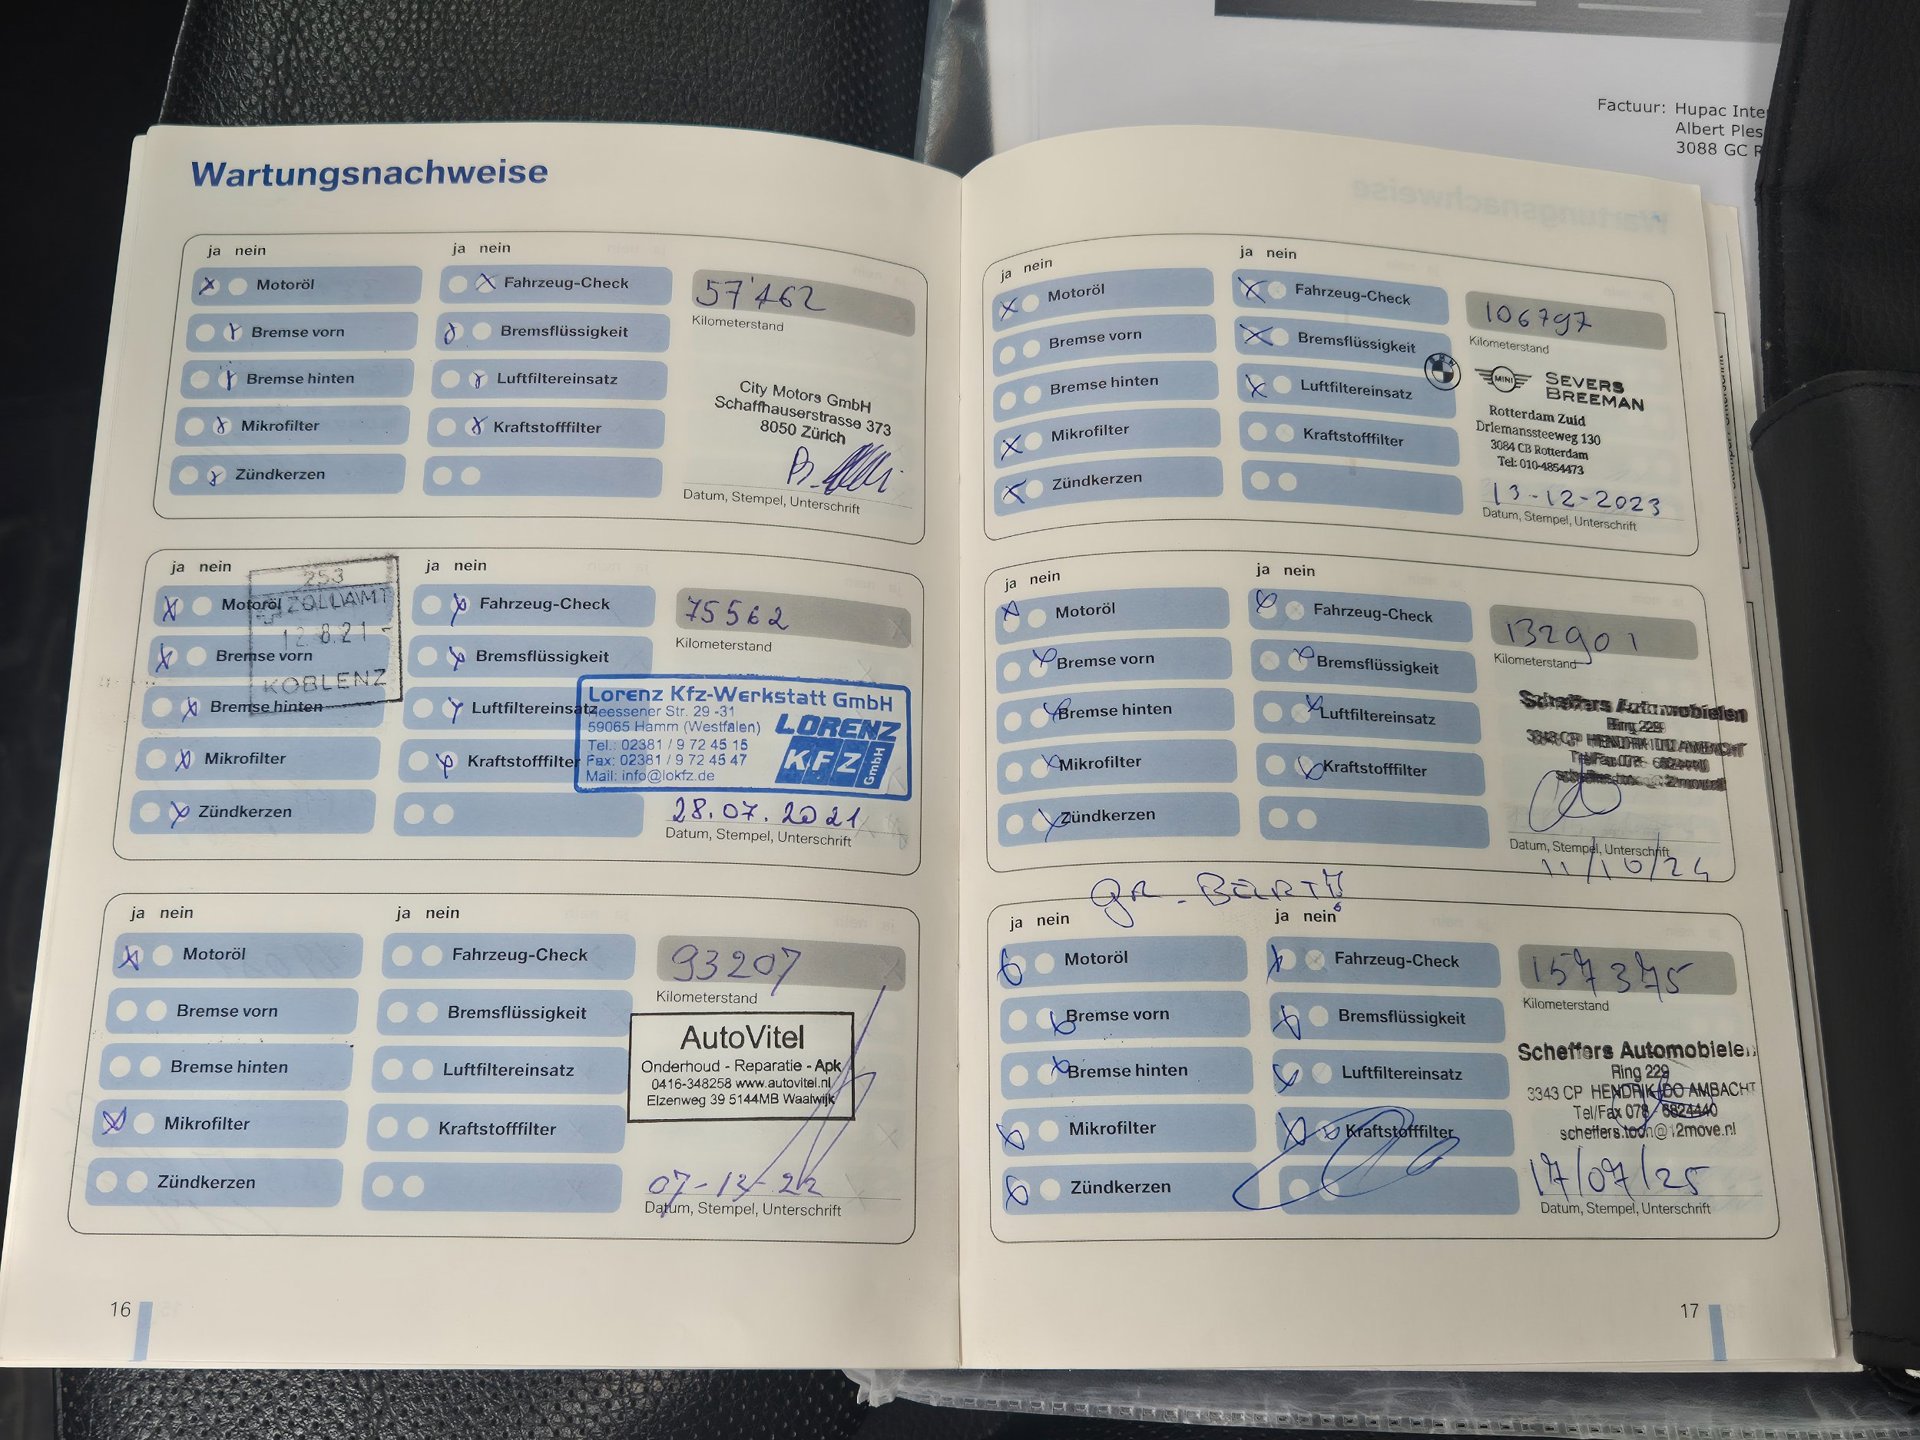 Factuur: Hupac Inte
Albert Ples
3088 GC R
Wartungsnachweise
ja nein
ja nein
Motoröl
Fahrzeug-Check
Bremse vorn
Bremsflüssigkeit
Bremse hinten
Luftfiltereinsatz
Mikrofilter
Kraftstofffilter
Zündkerzen
57'462
Kilometerstand
City Motors GmbH
Schaffhauserstrasse 373
8050 Zürich
Datum, Stempel, Unterschrift
ja nein
ja nein
Motoröl
Fahrzeug-Check
Bremse vorn
Bremsflüssigkeit
Bremse hinten
Luftfiltereinsatz
Mikrofilter
Kraftstofffilter
Zündkerzen
253
ZOLLAMT
12.8.21
KOBLENZ
75562
Kilometerstand
Lorenz Kfz-Werkstatt GmbH
Heessener Str. 29 -31
59065 Hamm (Westfalen)
Tel.: 02381 / 9 72 45 15
Fax: 02381 / 9 72 45 47
Mail: info@lokfz.de
LORENZ
KFZ GmbH
28.07.2021
Datum, Stempel, Unterschrift
ja nein
ja nein
Motoröl
Fahrzeug-Check
Bremse vorn
Bremsflüssigkeit
Bremse hinten
Luftfiltereinsatz
Mikrofilter
Kraftstofffilter
Zündkerzen
93207
Kilometerstand
AutoVitel
Onderhoud - Reparatie - Apk
0416-348258 www.autovitel.nl
Elzenweg 39 5144MB Waalwijk
Datum, Stempel, Unterschrift
16
ja nein
ja nein
Motoröl
Fahrzeug-Check
Bremse vorn
Bremsflüssigkeit
Bremse hinten
Luftfiltereinsatz
Mikrofilter
Kraftstofffilter
Zündkerzen
106797
Kilometerstand
MINI
SEVERS
BREEMAN
Rotterdam Zuid
Driemanssteeweg 130
3084 CB Rotterdam
Tel: 010-4854473
13-12-2023
Datum, Stempel, Unterschrift
ja nein
ja nein
Motoröl
Fahrzeug-Check
Bremse vorn
Bremsflüssigkeit
Bremse hinten
Luftfiltereinsatz
Mikrofilter
Kraftstofffilter
Zündkerzen
132901
Kilometerstand
Scheffers Automobielen
Ring 229
3343 CP HENDRIK IDO AMBACHT
Tel/Fax 078 - 6824440
Datum, Stempel, Unterschrift
11/10/24
GR. BERT!!
ja nein
ja nein
Motoröl
Fahrzeug-Check
Bremse vorn
Bremsflüssigkeit
Bremse hinten
Luftfiltereinsatz
Mikrofilter
Kraftstofffilter
Zündkerzen
157375
Kilometerstand
Scheffers Automobielen
Ring 229
3343 CP HENDRIK IDO AMBACHT
Tel/Fax 078 - 6824440
scheffers.toon@12move.nl
17/07/25
Datum, Stempel, Unterschrift
17